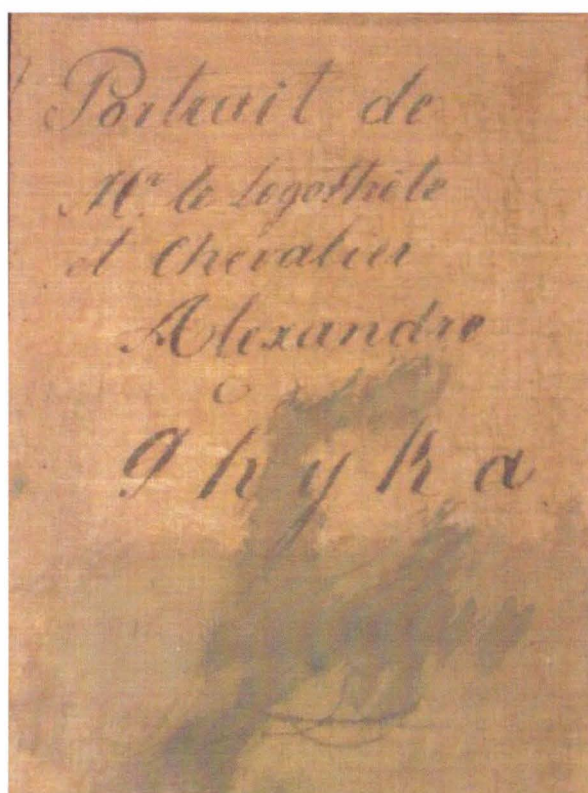 Portrait de
Mr. le Logothète
et Chevalier
Alexandre
ghyka